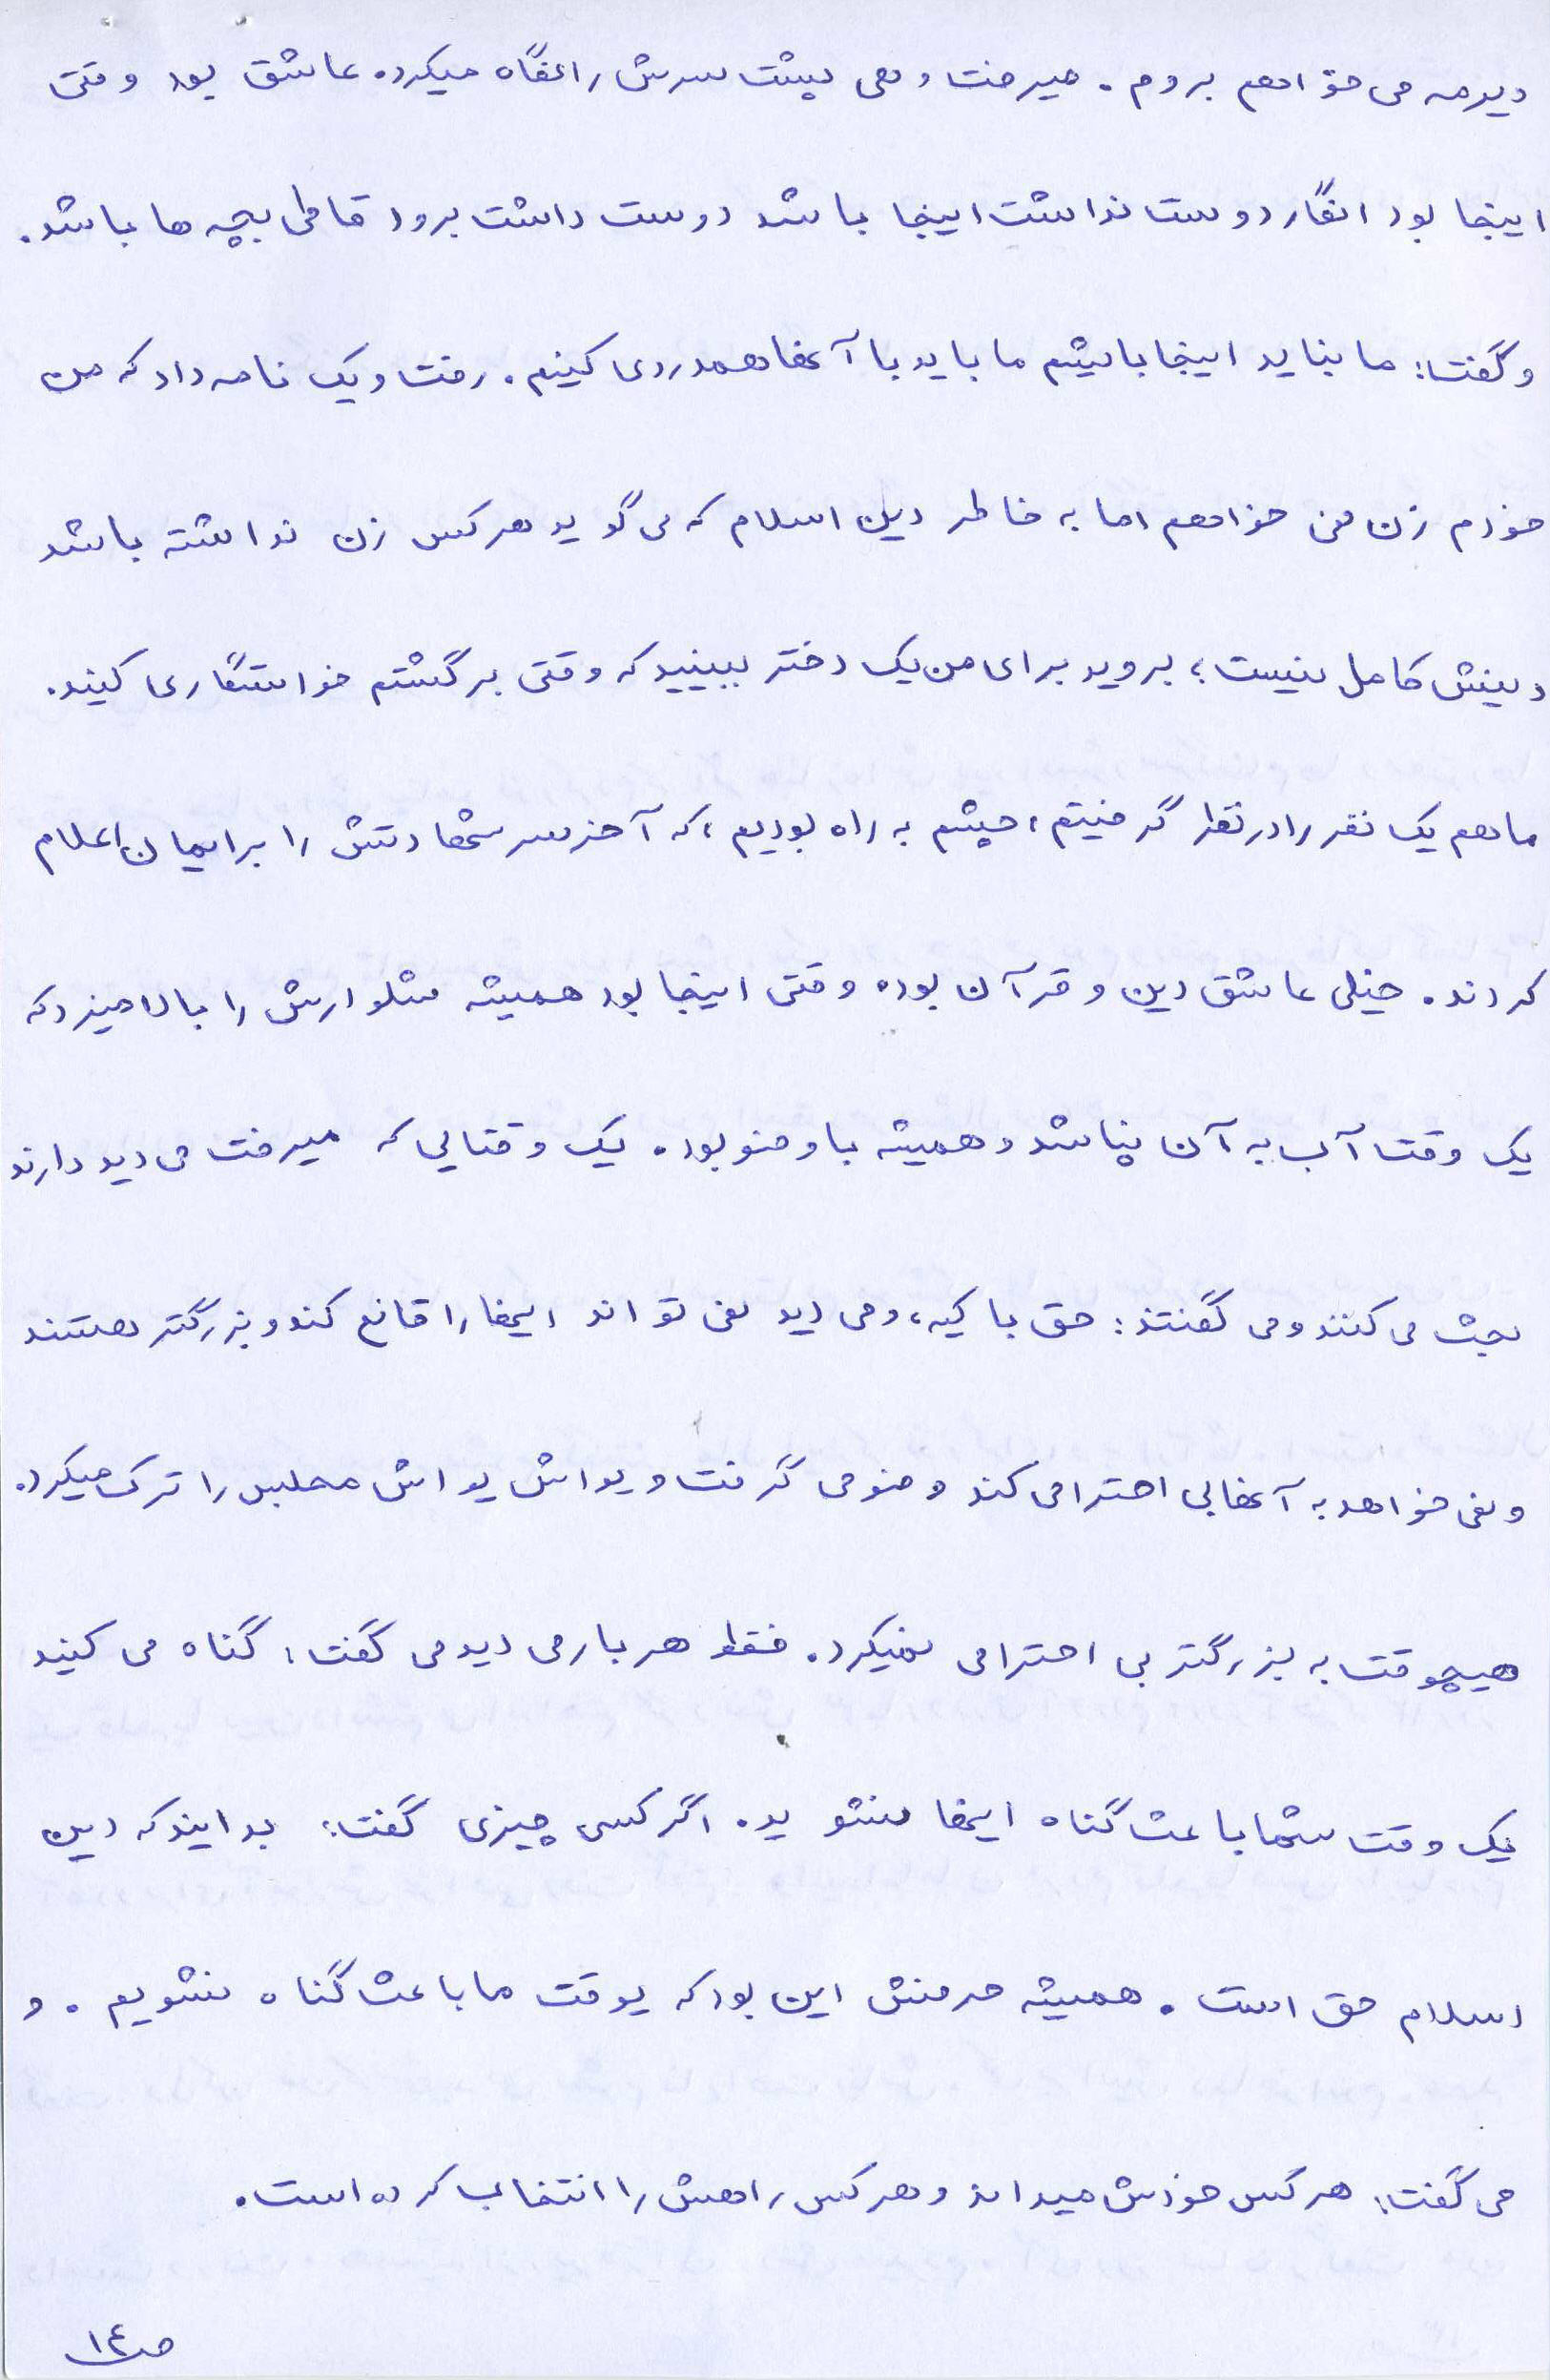 دیر می خواهم بروم. میرفت و هی پشت سرش را نگاه میکرد. عاشق بود وقتی
اینجا بود انگار دوست نداشت اینجا باشد دوست داشت برود قاطی بچه ها باشد.
و گفت: ما نباید اینجا باشیم ما باید با آنها همدردی کنیم. رفت و یک نامه داد که من
خودم زن نمی خواهم اما به خاطر دین اسلام که می گوید هر کس زن نداشته باشد
دینش کامل نیست؛ بروید برای من یک دختر ببینید که وقتی برگشتم خواستگاری کنید.
ما هم یک نفر را در نظر گرفتیم، چشم به راه بودیم، که آخر سر شهادتش را برایمان اعلام
کردند. خیلی عاشق دین و قرآن بود. وقتی اینجا بود همیشه شلوارش را بالا میزد که
یک وقت آب به آن نپاشد و همیشه با وضو بود. یک وقتایی که میرفت می دید دارند
بحث می کنند و می گفتند: حق با کیه، و می دید نمی تواند اینها را قانع کند و بزرگتر هستند
و نمی خواهد به آنها بی احترامی کند وضو می گرفت و یواش یواش مجلس را ترک میکرد.
هیچوقت به بزرگتر بی احترامی نمیکرد. فقط هر بار می دید می گفت: گناه می کنید
یک وقت شما باعث گناه اینها نشوید. اگر کسی چیزی گفت: بدانید که دین
اسلام حق است. همیشه حرفش این بود که یوقت ما باعث گناه نشویم. و
می گفت: هر کس خودش میداند و هر کس راهش را انتخاب کرده است.
ص١٤